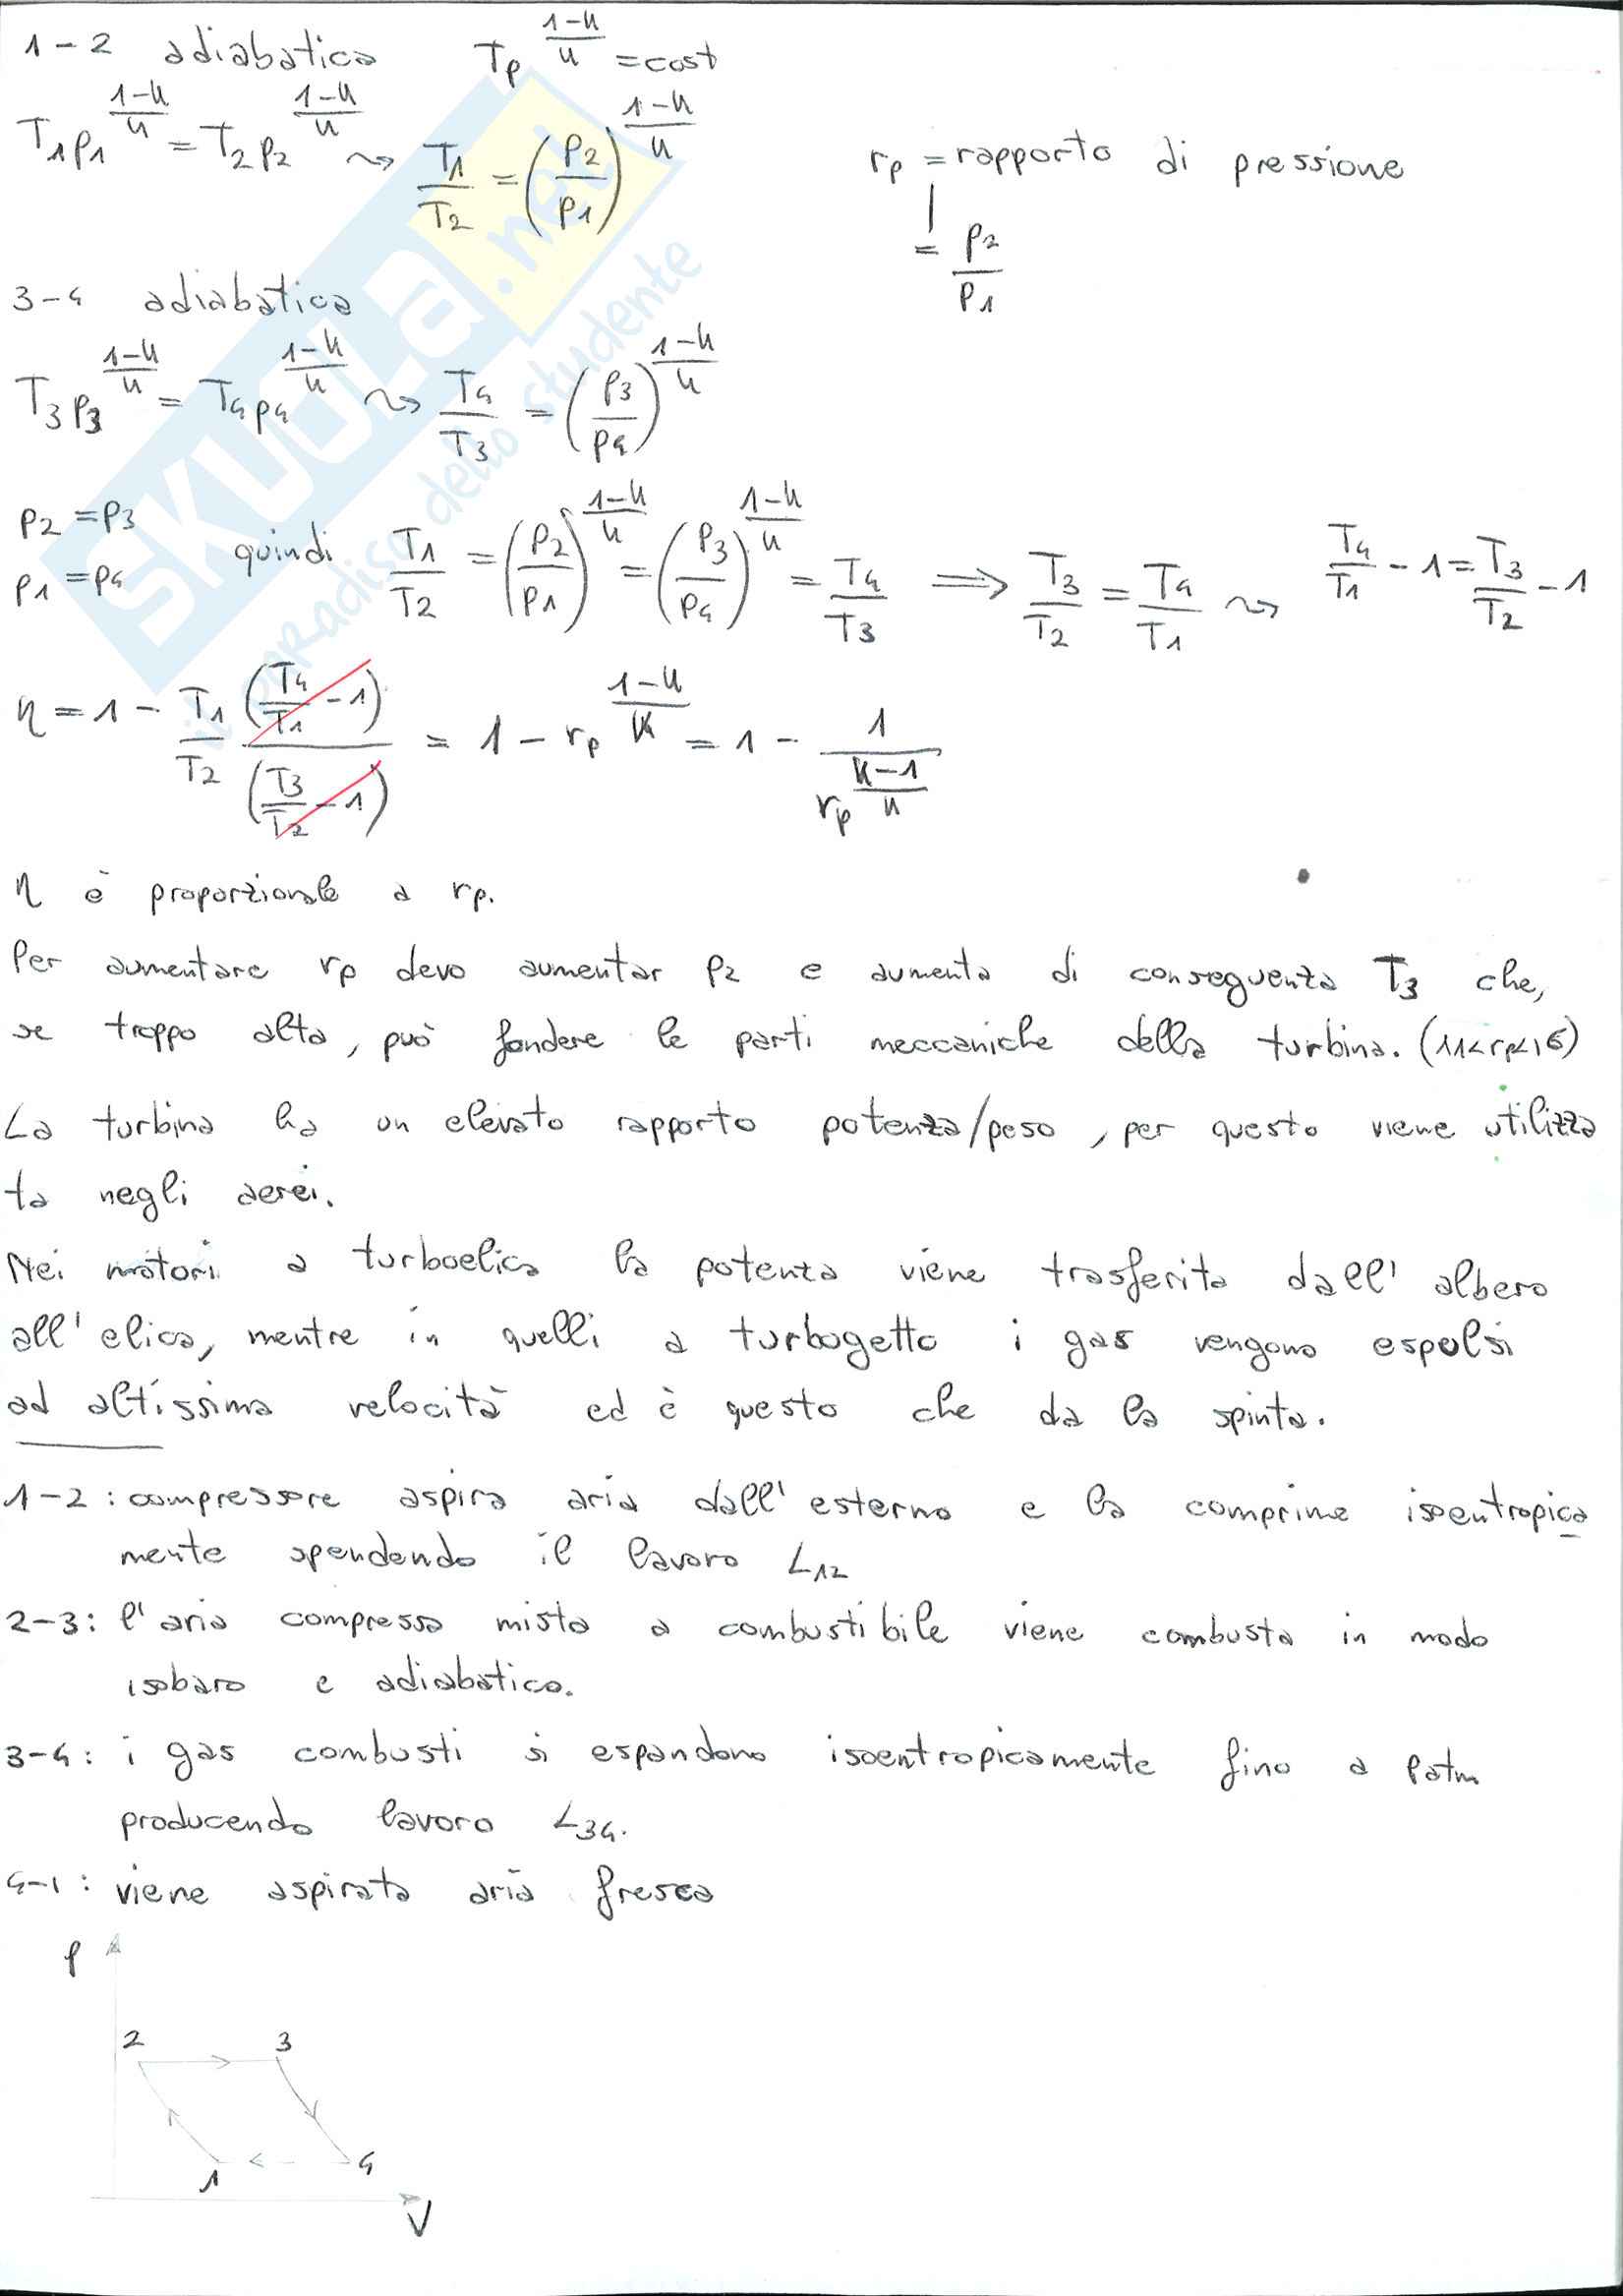 1-2 adiabatica Tp^((1-k)/k) = cost
T1p1^((1-k)/k) = T2p2^((1-k)/k) ⤳ T1/T2 = (p2/p1)^((1-k)/k)
rp = rapporto di pressione
= p2/p1
3-4 adiabatica
T3p3^((1-k)/k) = T4p4^((1-k)/k) ⤳ T4/T3 = (p3/p4)^((1-k)/k)
p2 = p3
p1 = p4
quindi T1/T2 = (p2/p1)^((1-k)/k) = (p3/p4)^((1-k)/k) = T4/T3 ⟹ T3/T2 = T4/T1 ⤳ T4/T1 - 1 = T3/T2 - 1
η = 1 - T1/T2 (T4/T1 - 1)/(T3/T2 - 1) = 1 - rp^((1-k)/k) = 1 - 1/rp^((k-1)/k)
η è proporzionale a rp.
Per aumentare rp devo aumentar p2 e aumenta di conseguenza T3 che,
se troppo alta, può fondere le parti meccaniche della turbina. (11<rp<16)
La turbina ha un elevato rapporto potenza/peso, per questo viene utilizza
ta negli aerei.
Nei motori a turboelica la potenza viene trasferita dall'albero
all'elica, mentre in quelli a turbogetto i gas vengono espulsi
ad altissima velocità ed è questo che da la spinta.
1-2: compressore aspira aria dall'esterno e la comprime isoentropica
mente spendendo il lavoro L12
2-3: l'aria compressa mista a combustibile viene combusta in modo
isobaro e adiabatico.
3-4: i gas combusti si espandono isoentropicamente fino a Patm
producendo lavoro L34.
4-1: viene aspirata aria fresca
P
2 3
1 4
V
SKUOLA.net
il paradiso dello studente